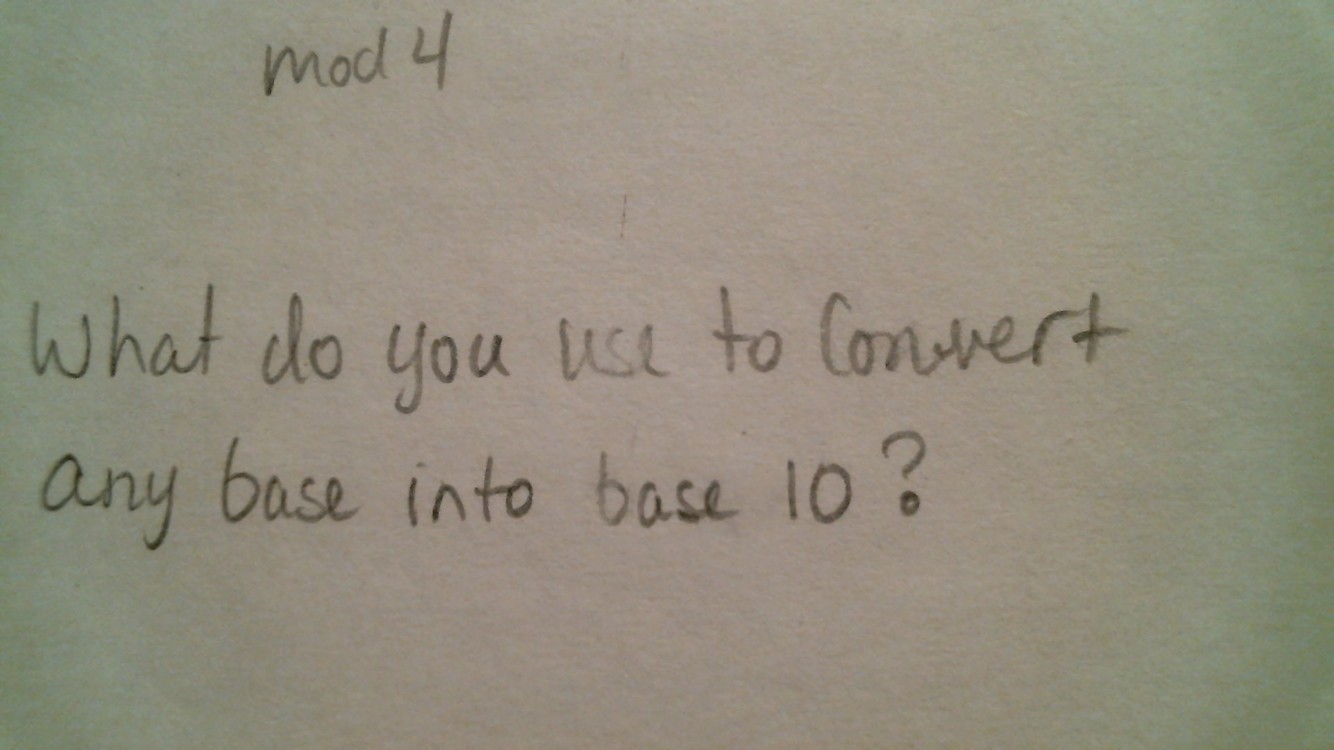 mod 4
What do you use to Convert
any base into base 10?